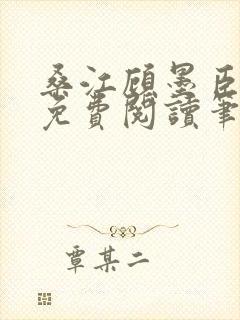 桑江顾墨臣
免費閱讀筆
覃某二